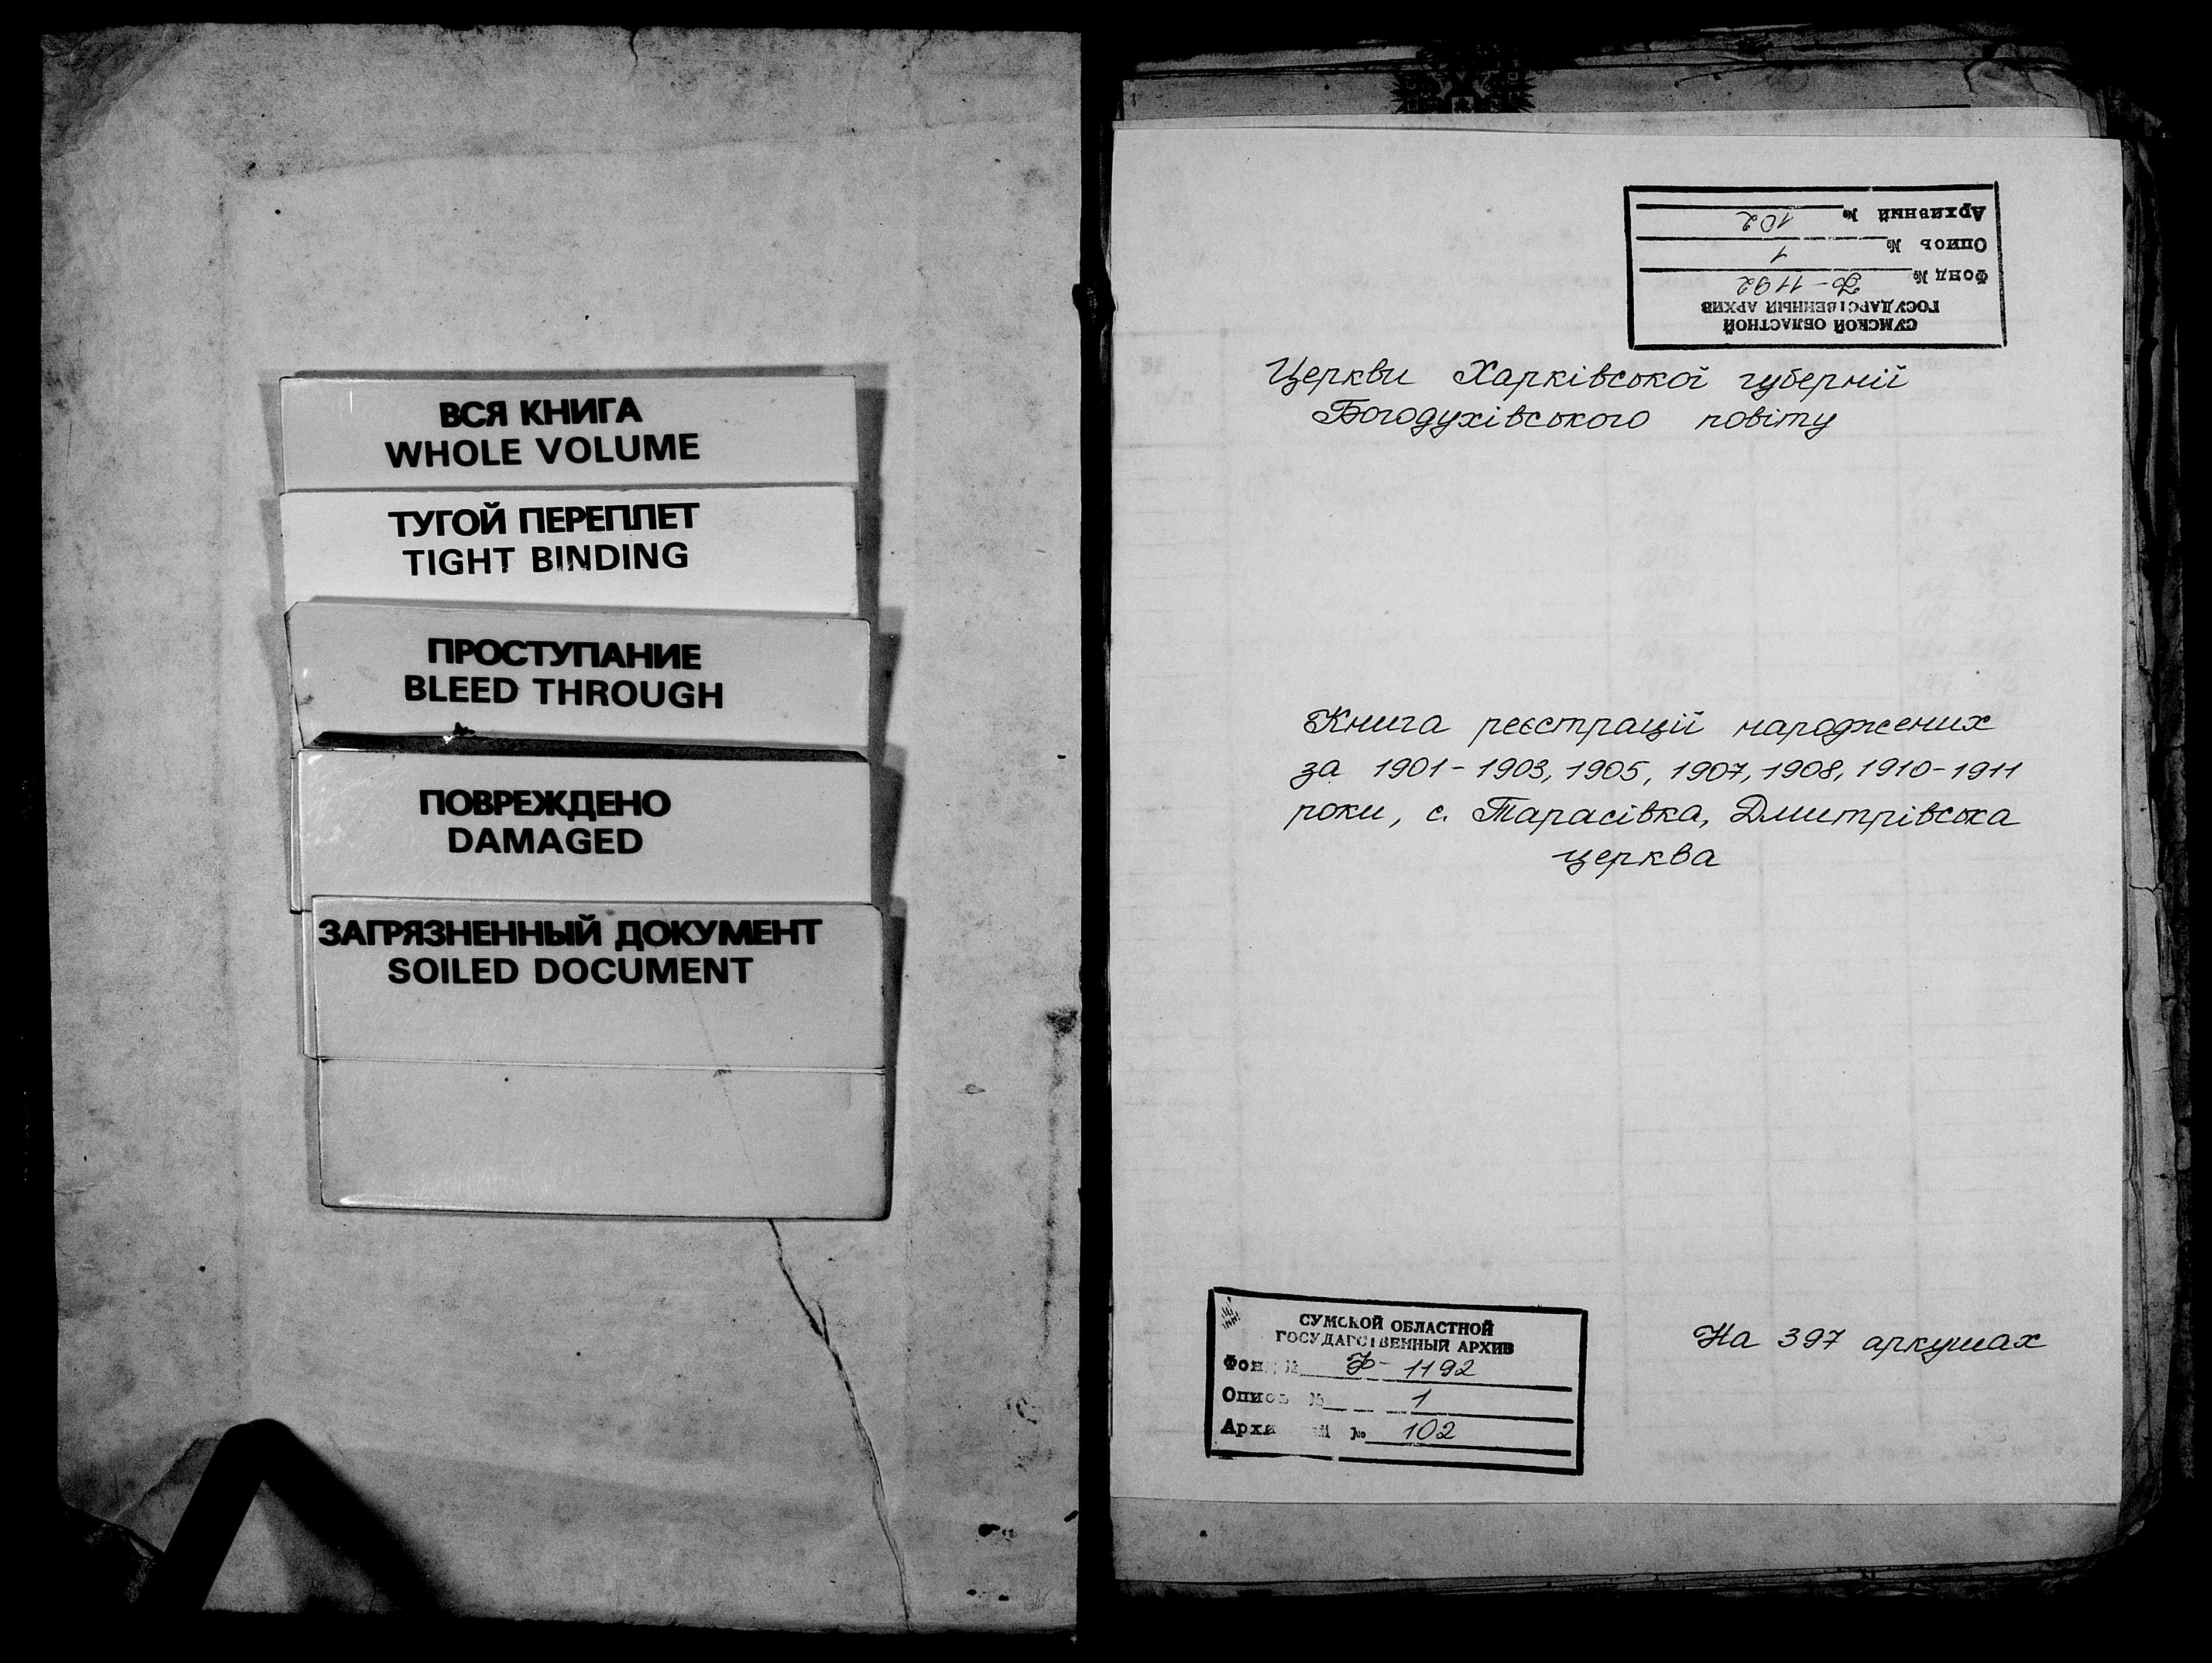 ВСЯ КНИГА
WHOLE VOLUME
ТУГОЙ ПЕРЕПЛЕТ
TIGHT BINDING
ПРОСТУПАНИЕ
BLEED THROUGH
ПОВРЕЖДЕНО
DAMAGED
ЗАГРЯЗНЕННЫЙ ДОКУМЕНТ
SOILED DOCUMENT
СУМСКОЙ ОБЛАСТНОЙ
ГОСУДАРСТВЕННЫЙ АРХИВ
Фонд № Ф-1192
Опись № 1
Архивный № 102
Церкви Харківської губернії
Богодухівського повіту
Книга реєстрації народжених
за 1901-1903, 1905, 1907, 1908, 1910-1911
роки, с. Тарасівка, Дмитрівська
церква
СУМСКОЙ ОБЛАСТНОЙ
ГОСУДАРСТВЕННЫЙ АРХИВ
Фон № Ф-1192
Опись № 1
Архи ый № 102
На 397 аркушах